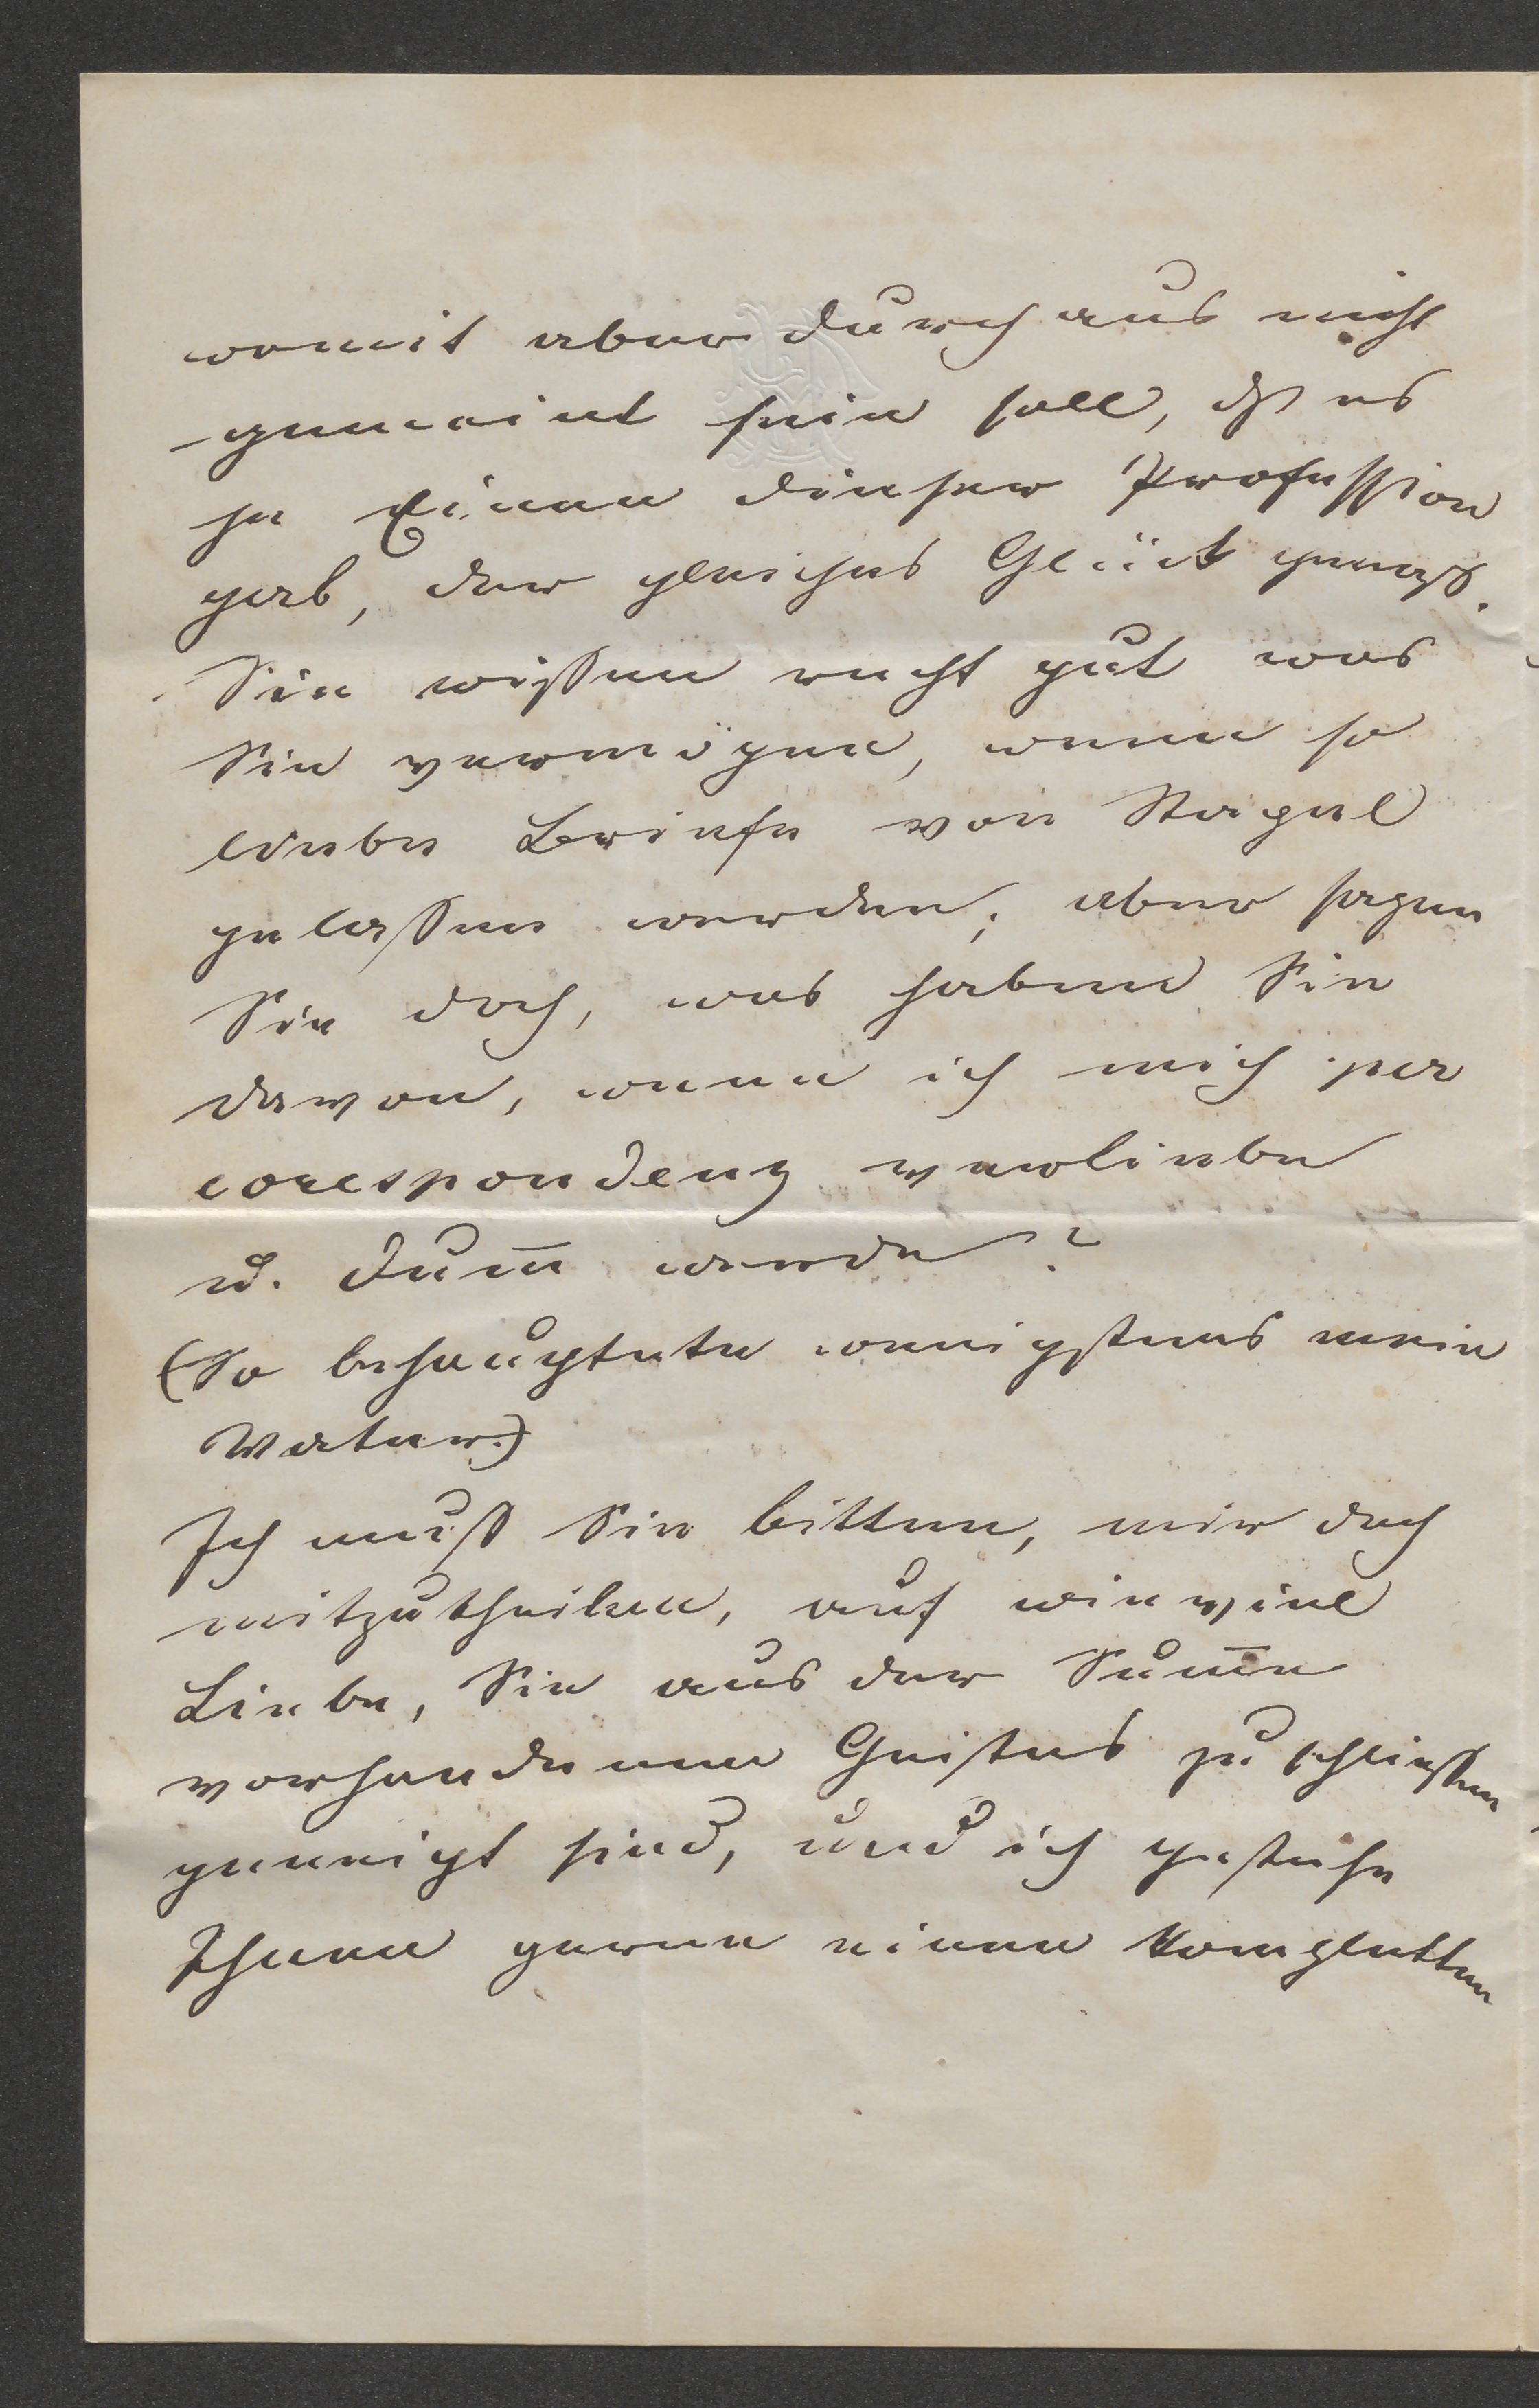 womit aber durchaus nicht
gemeint sein soll, dß es
je Einen dieser Profession
gab, der gleiches Glück genoß.
Sie wissen recht gut was
Sie vermögen, wenn so
liebe Briefe von Stapel
gelassen werden; aber sagen
Sie doch, was haben Sie
davon, wenn ich mich per
corespondenz verliebe
u. dum̅ werde?
(So behauptete wenigstens mein
Vater.)
Ich muß Sie bitten, mir doch
mitzutheilen, auf wie viel
Liebe, Sie aus der Sum̅e
vorhandenen Geistes zu schließen
geneigt sind, und ich gestehe
Ihnen gerne einen kompletten